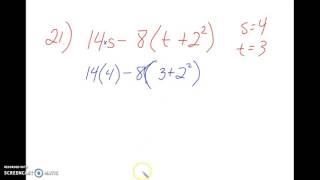 21) 14·s - 8(t + 2²) s=4
t=3
14(4) - 8(3+2²)
RECORDED WITH
SCREENCAST MATIC